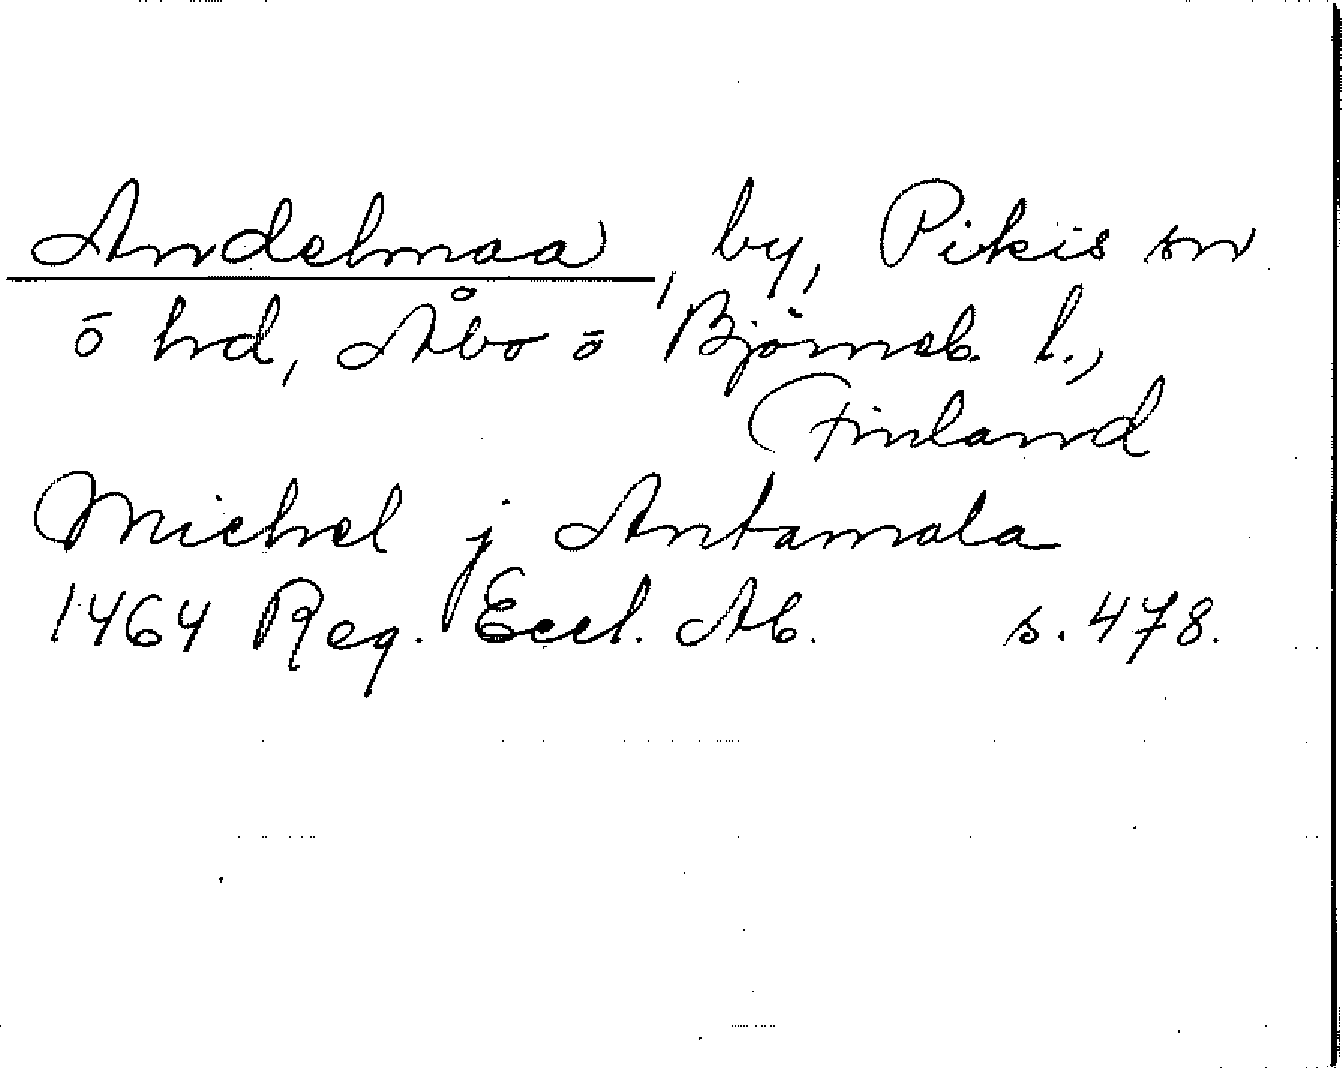 Andelmaa, by, Pikis sn
ō hd, Åbo ō Björneb. l.,
Finland
Michel j Antamala
1464 Reg. Eccl. Ab. s. 478.